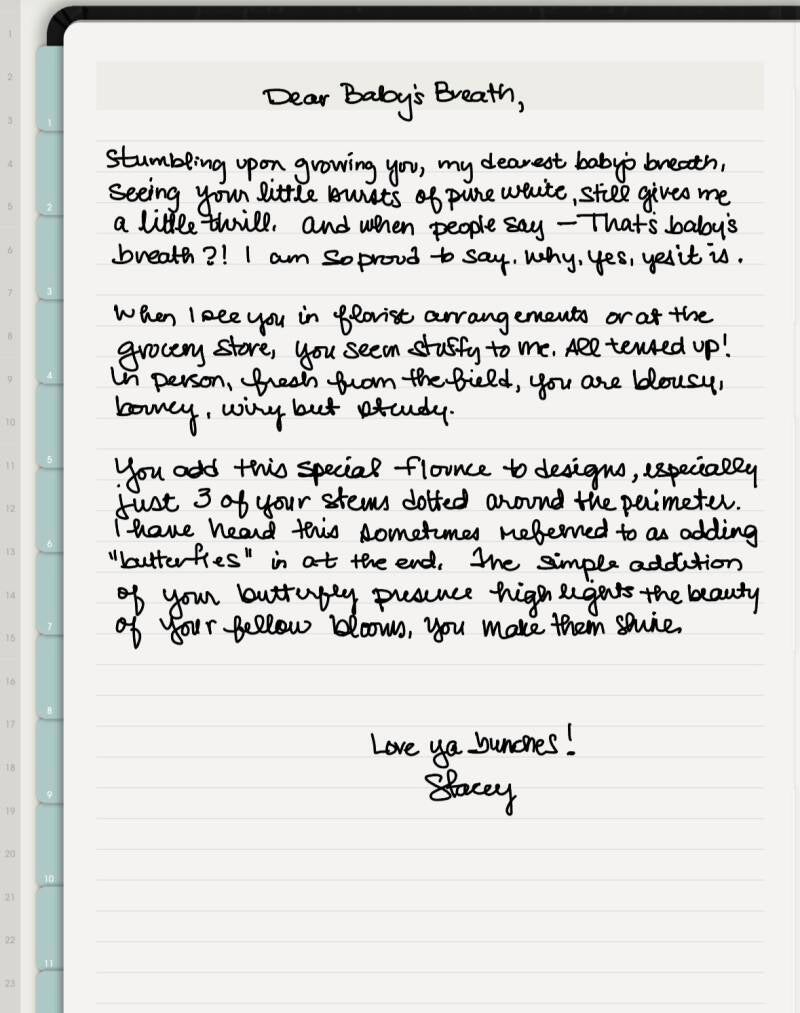 Dear Baby's Breath,
Stumbling upon growing you, my dearest baby's breath,
seeing your little bursts of pure white, still gives me
a little thrill. And when people say — That's baby's
breath?! I am so proud to say. Why, yes, yes it is.
When I see you in florist arrangements or at the
grocery store, you seem stuffy to me. All tensed up!
In person, fresh from the field, you are blousy,
bouncy, wiry but sturdy.
You add this special flounce to designs, especially
just 3 of your stems dotted around the perimeter.
I have heard this sometimes referred to as adding
"butterflies" in at the end. The simple addition
of your butterfly presence high lights the beauty
of your fellow blooms, you make them shine.
Love ya bunches!
Stacey
1
2
3
4
5
6
7
8
9
10
11
12
13
14
15
16
17
18
19
20
21
22
23
1
2
3
4
5
6
7
8
9
10
11